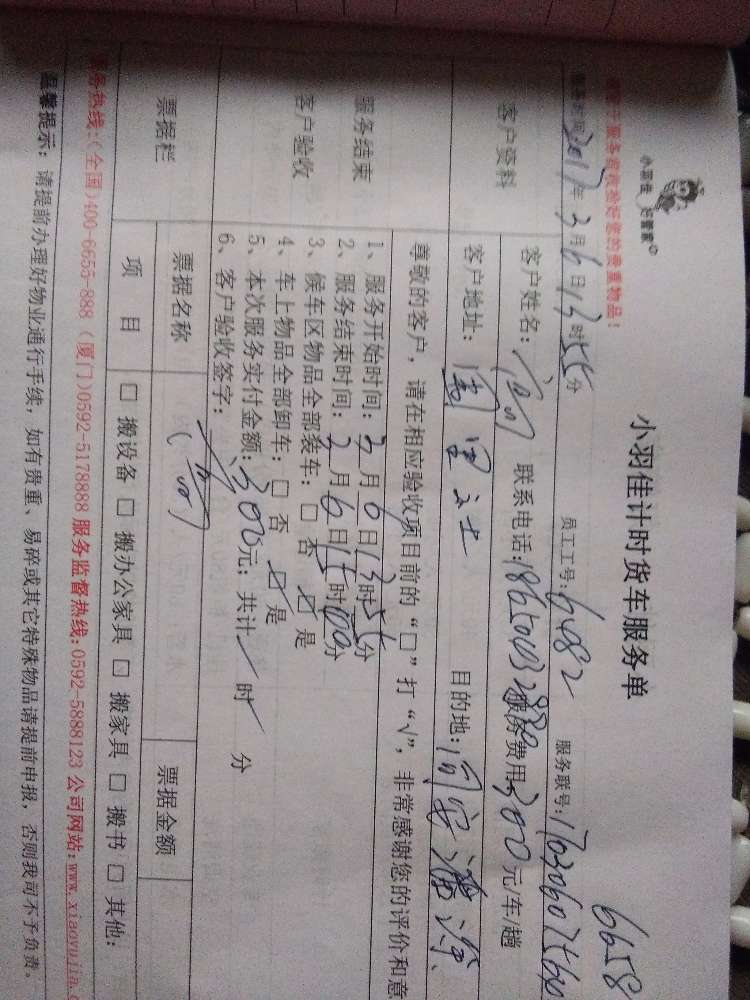 小羽佳 好管家
小羽佳计时货车服务单
6658
服务时间2017年3月6日13时55分 员工工号:6482 服务联号:
客户资料
客户姓名: 联系电话: 服务费用300元/车/趟
客户地址: 目的地:同安
尊敬的客户，请在相应验收项目前的“□”打“√”，非常感谢您的评价和意
服务结束
客户验收
1、服务开始时间:3月6日13时55分
2、服务结束时间:3月6日15时00分
3、候车区物品全部装车: □ 否 ☑ 是
4、车上物品全部卸车: □ 否 ☑ 是
5、本次服务实付金额:300元; 共计 时 分
6、客户验收签字:
票据栏
票据名称 票据金额
项 目 □ 搬设备 □ 搬办公家具 □ 搬家具 □ 搬书 □ 其他:
服务热线:(全国)400-6655-888 (厦门)0592-5178888 服务监督热线:0592-5888123 公司网站:www.xiaoyujia.c
温馨提示: 请提前办理好物业通行手续，如有贵重、易碎或其它特殊物品请提前申报，否则我司不予负责。